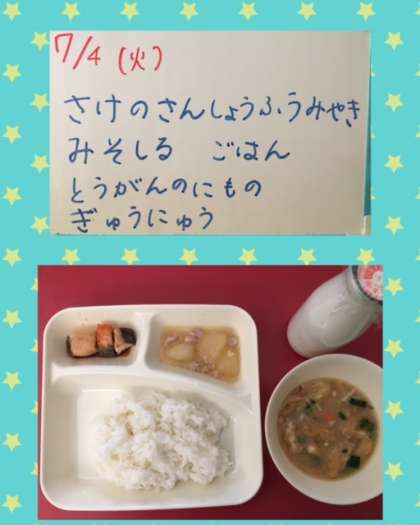 7/4 (火)
さけのさんしょうふうみやき
みそしる ごはん
とうがんのにもの
ぎゅうにゅう